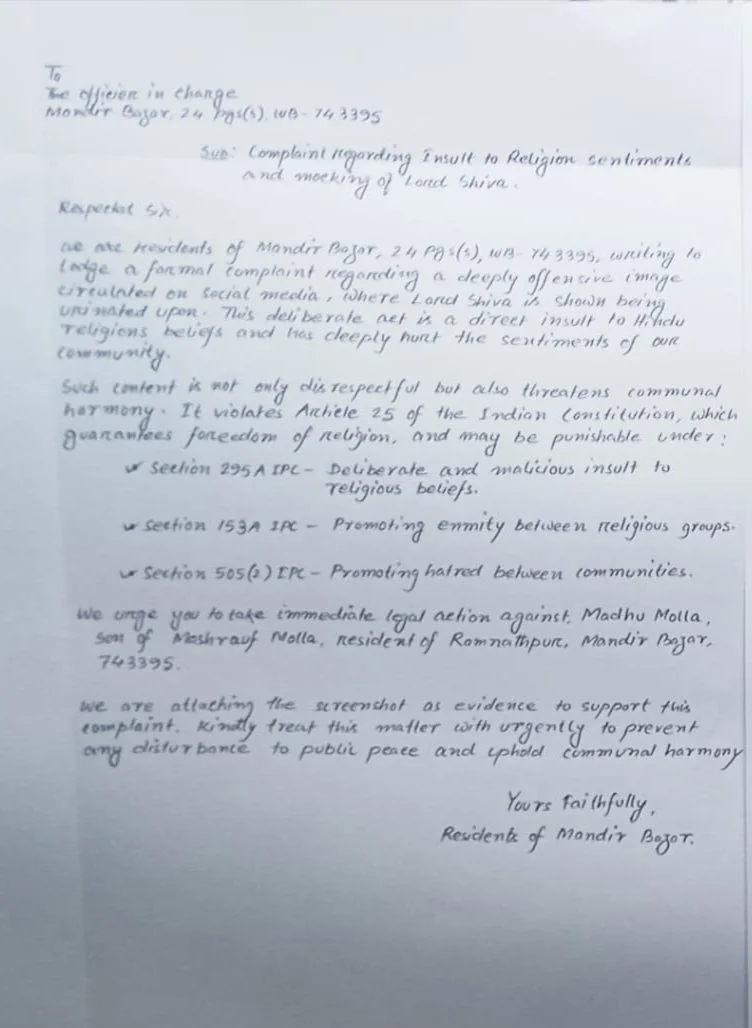 To
The officer in change
Mandir Bazar, 24 pgs(s), WB - 743395
Sub: Complaint regarding Insult to Religion sentiments
and mocking of Lord Shiva.
Respected Sir,
we are residents of Mandir Bazar, 24 Pgs(s), WB- 743395, writing to
lodge a formal complaint regarding a deeply offensive image
circulated on social media, where Lord Shiva is shown being
urinated upon. This deliberate act is a direct insult to Hindu
religions beliefs and has deeply hurt the sentiments of our
community.
Such content is not only disrespectful but also threatens communal
harmony. It violates Article 25 of the Indian Constitution, which
guarantees foreedom of religion, and may be punishable under:
Section 295A IPC - Deliberate and malicious insult to
religious beliefs.
Section 153A IPC - Promoting enmity between religious groups.
Section 505(2) IPC - Promoting hatred between communities.
We urge you to take immediate legal action against, Madhu Molla,
son of Moshrauf Molla, resident of Ramnathpur, Mandir Bazar,
743395.
we are attaching the screenshot as evidence to support this
complaint. Kindly treat this matter with urgently to prevent
any disturbance to public peace and uphold communal harmony
Yours Faithfully,
Residents of Mandir Bazar.